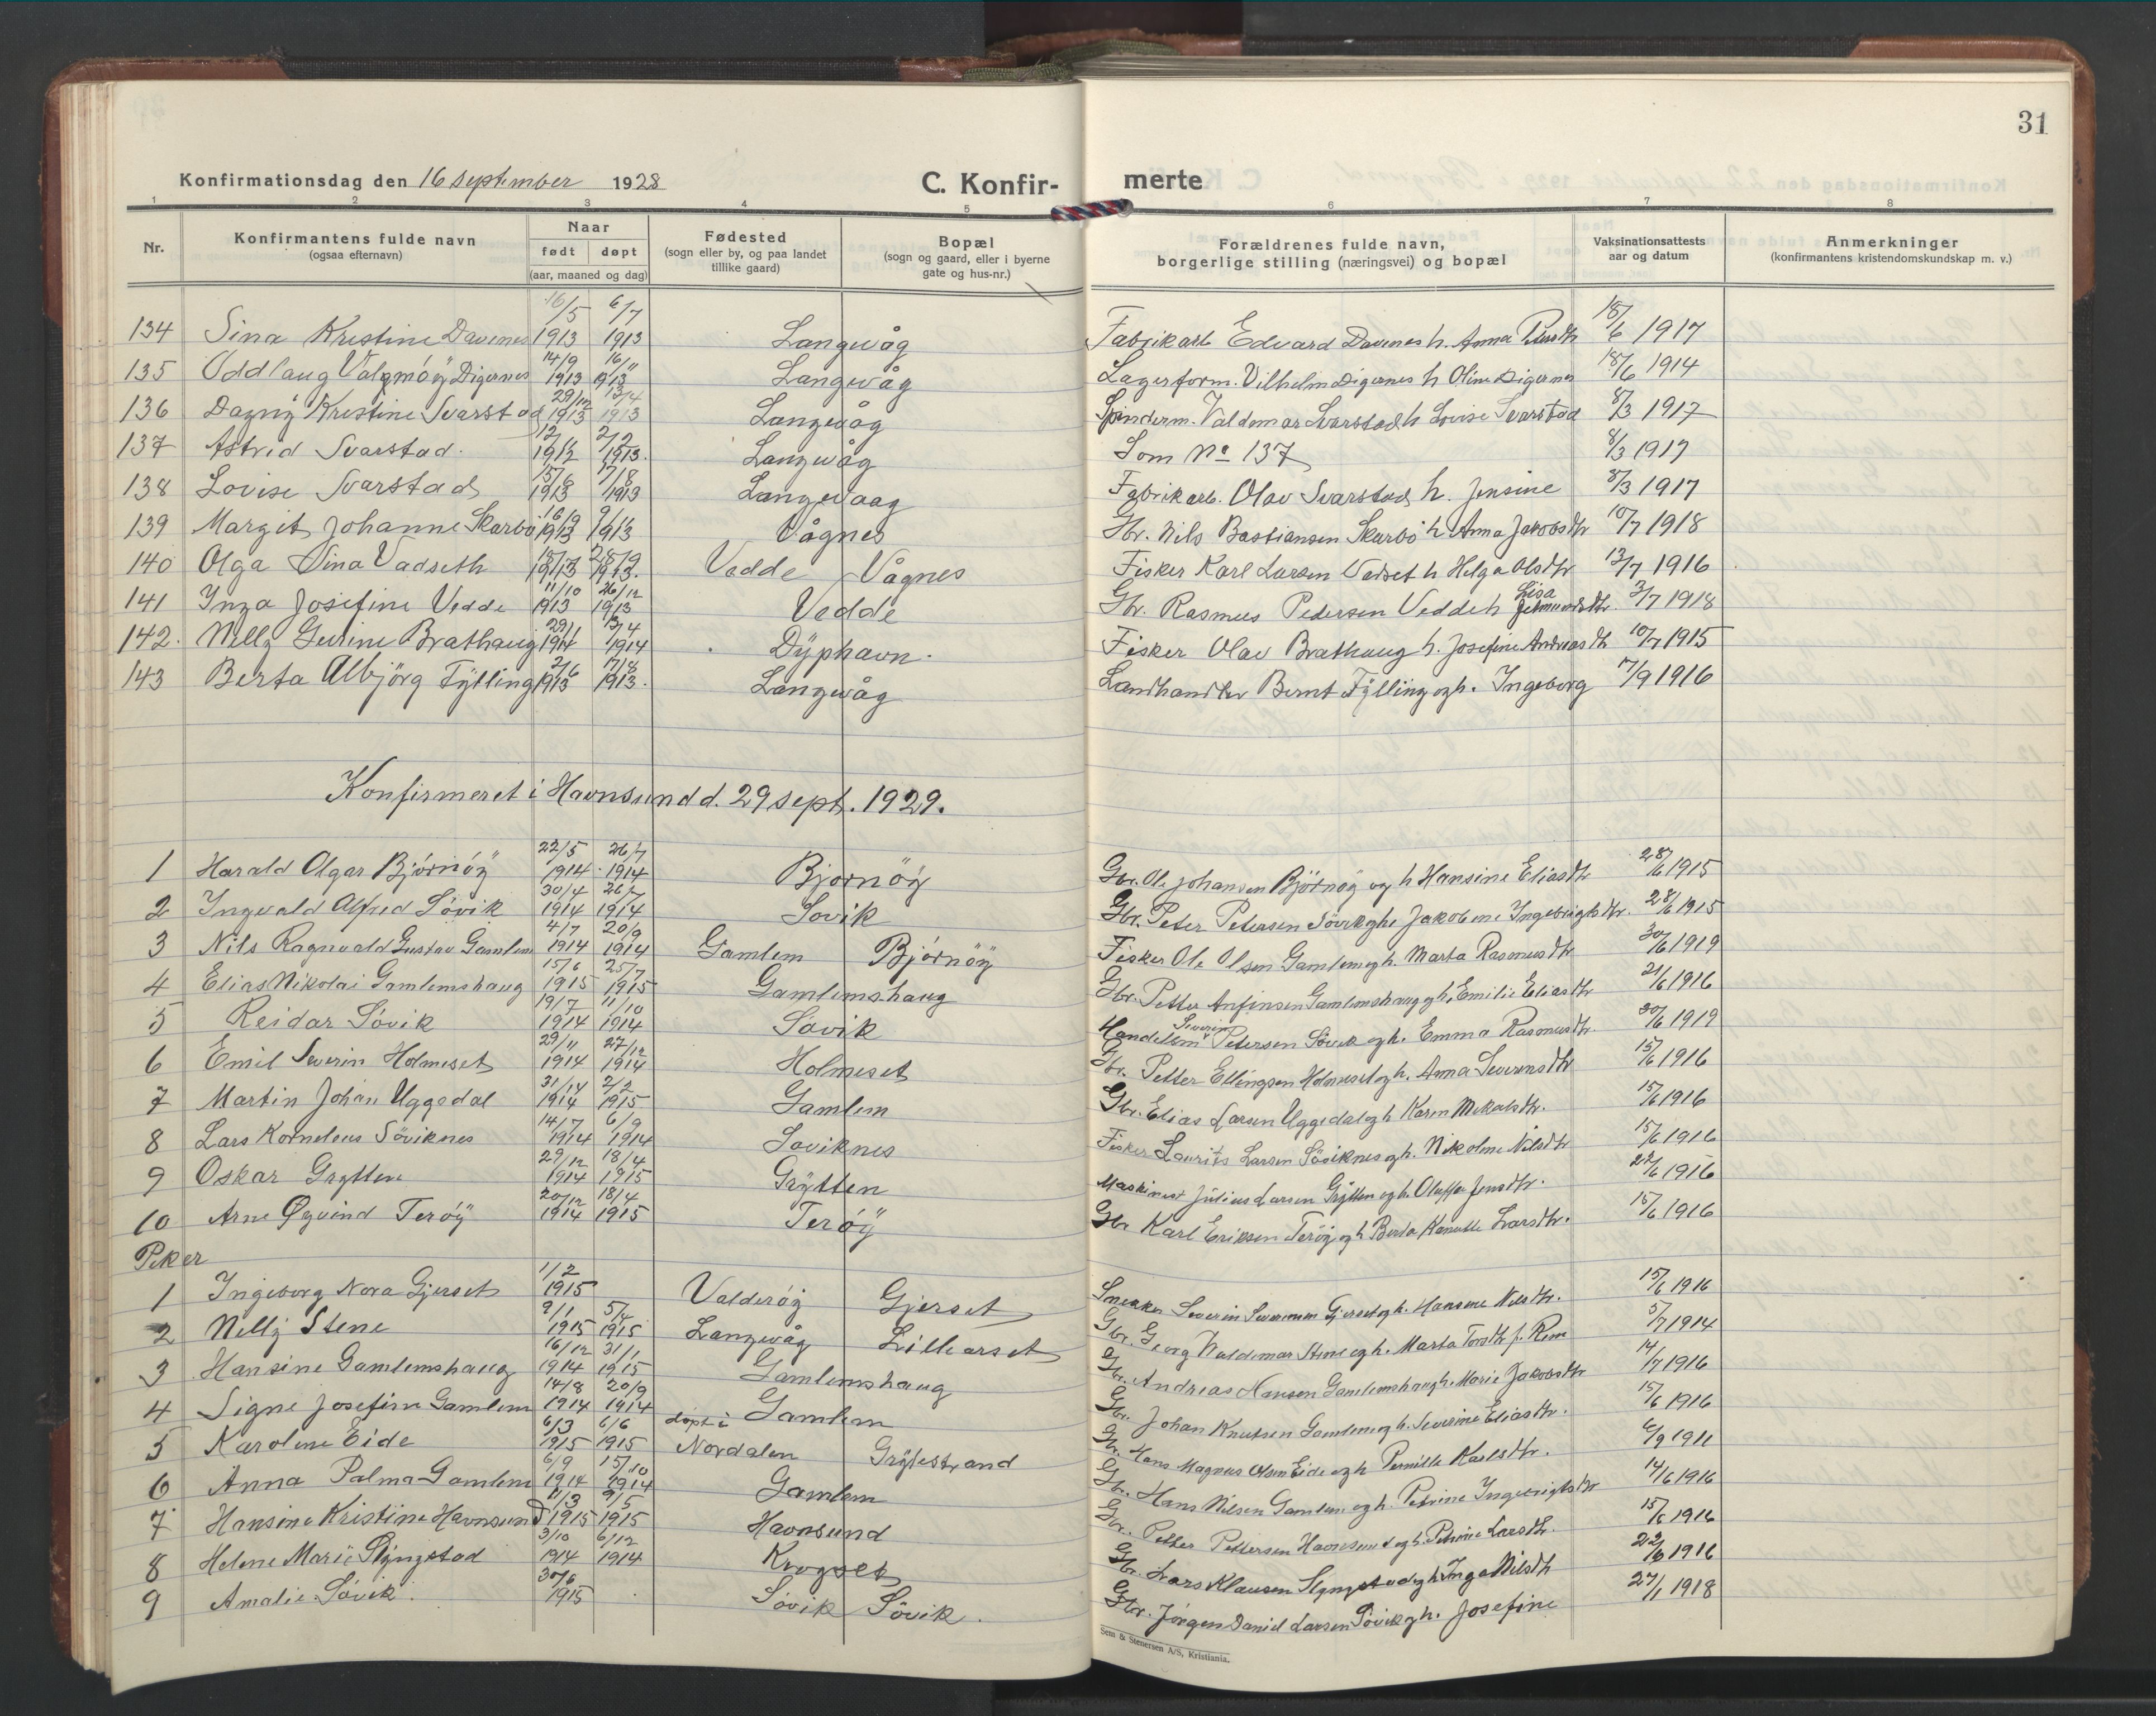 31
Konfirmationsdag den 16 september 1928 C. Konfir- merte
1 2 3 4 5 6 7 8
Nr. Konfirmantens fulde navn (ogsaa efternavn) Naar født døpt (aar, maaned og dag) Fødested (sogn eller by, og paa landet tillike gaard) Bopæl (sogn og gaard, eller i byerne gate og hus-nr.) Forældrenes fulde navn, borgerlige stilling (næringsvei) og bopæl Vaksinationsattests aar og datum Anmerkninger (konfirmantens kristendomskundskap m. v.)
134 Sina Kristine Davenes 16/5 1913 6/7 1913 Langevåg Fabrikarb Edvard Davenes h. Anna 18/6 1917
135 Oddlaug Valgmöÿ Digernes 14/9 1913 16/11 1913 Langevåg Lagerform. Vilhelm Digernes h Oline Digernes 18/6 1914
136 Dagnÿ Kristine Svarstad 29/12 1913 13/4 1913 Langevåg Spinderm. Valdemar Svarstad h Lovise Svarstad 8/3 1917
137 Astrid Svarstad. 1912 2/2 1913. Langevåg Som No 137 8/3 1917
138 Lovise Svarstad 15/6 1913 17/8 1913 Langevaag Fabrikarb. Olav Svarstad h. Jensine 8/3 1917
139 Margit Johanne Skarbö 16/9 1913 9/11 1913 Vågnes Gbr. Nils Bastiansen Skarbö h Anna Jakobsdtr 10/7 1918
140 Olga Sina Vadseth 18/7 1913 28/9 1913. Vedde Vågnes Fisker Karl Larsen Vadset h Helga Olsdtr 13/7 1916
141 Inga Josefine Vedde 11/10 1913 26/12 1913 Vedde Gbr. Rasmus Pedersen Vedde h Lisa Jetmundsdtr. 3/7 1918
142. Nelly Gurine Brathaug 29/1 1914 13/4 1914 Dÿphavn. Fisker Olav Brathaug h. Josefine Andreasdtr 10/7 1915
143 Berta Albjörg Fÿlling 2/6 1913 17/8 1913. Langevåg Landhandler Bernt Fÿlling og h. Ingeborg 7/9 1916
Konfirmeret i Havnsund d. 29 sept. 1929.
1 Harald Olgar Björnöÿ 22/5 1914 26/7 1914 Bjornöÿ Gbr. Ole Johansen Björnöÿ og h Hansine Eliasdtr 28/6 1915
2 Ingvald Alfred Sövik 30/4 1914 26/7 1914 Sovik Gbr. Peter Petersen Sövik og h. Jakobine Ingebrigtsdtr. 28/6 1915
3 Nils Ragnvald Gustav Gamlem 4/7 1914 20/9 1914 Gamlem Björnöÿ Fisker Ole Olsen Gamlem og h. Marta Rasmusdtr 30/6 1919
4 Elias Nikolai Gamlemshaug 15/6 1915 25/7 1915 Gamlemshaug Gbr. Petter Anfinsen Gamlemshaug og h. Emilie Eliasdtr 21/6 1916
5 Reidar Sövik 19/7 1914 11/10 1914 Sövik Handelsm Severin Petersen Sövik og h. Emma Rasmusdtr. 30/6 1919
6 Emil Severin Holmeset 29/11 1914 27/12 1914 Holmeset Gbr. Petter Ellingsen Holmeset og h. Anna Severinsdtr 15/6 1916
7 Martin Johan Uggedal 31/14 1914 2/2 1915 Gamlem Gbr. Elias Larsen Uggedal og h Karen Mikalsdtr. 15/6 1916
8 Lars Kornelius Söviknes 14/7 1914 6/9 1914 Soviknes Fisker Laurits Larsen Söviknes og h. Nikoline Nilsdtr 15/6 1916
9 Oskar Grytten 29/12 1914 18/4 1915 Grÿtten Maskinist Julius Larsen Grÿtten og h. Oluffa Jensdtr. 22/6 1916
10 Arne Øyvind Teröÿ 20/12 1914 18/4 1915 Teröÿ Gbr Karl Eriksen Teröÿ og h Berta Kanutte Larsdtr. 15/6 1916
Piker
1 Ingeborg Nora Gjerset 1/2 1915 Valderöÿ Gjerset Snekker Severin Gjerset og h. Hansine Nilsdtr. 15/6 1916
2 Nellÿ Stene 9/1 1915 5/4 1915 Langevåg Lillearset Gbr. Georg Valdemar Stene og h. Marta f. Rem 5/7 1914
3 Hansine Gamlemshaug 16/12 1914 31/1 1915 Gamlemshaug Gbr. Andreas Hansen Gamlemshaug h. Marie Jakobsdtr 14/7 1916
4 Signe Josefine Gamlem 14/8 1914 20/9 1914 Gamlem Gbr. Johan Knutsen Gamlem og h. Severine Eliasdtr. 15/6 1916
5 Karoline Eide 6/3 1915 6/6 1915 döpt i Nordalen Grÿtestrand Gbr. Hans Magnus Olsen Eide og h Pernille Karlsdtr. 6/9 1911
6 Anna Palma Gamlem 6/9 1914 15/10 1914 Gamlem Gbr. Hans Nilsen Gamlem og h. Petrine Ingebrigtsdtr 14/6 1916
7 Hansine Kristine Havnsund 11/3 1915 9/5 1915 Havnsund Gbr. Petter Pettersen Havnsund og h. Petrine Larsdtr. 15/6 1916
8 Helene Marie Slÿngstad 3/10 1914 6/12 1914 Krogset Gbr. Lars Klausen Slÿngstad og h Inga Nilsdtr 22/6 1916
9 Amalie Sövik. 30/6 1915 Sövik Sövik. Gbr. Jörgen Daniel Larsen Sövik og h. Josefine 27/1 1918
Sem & Stenersen A/S, Kristiania.